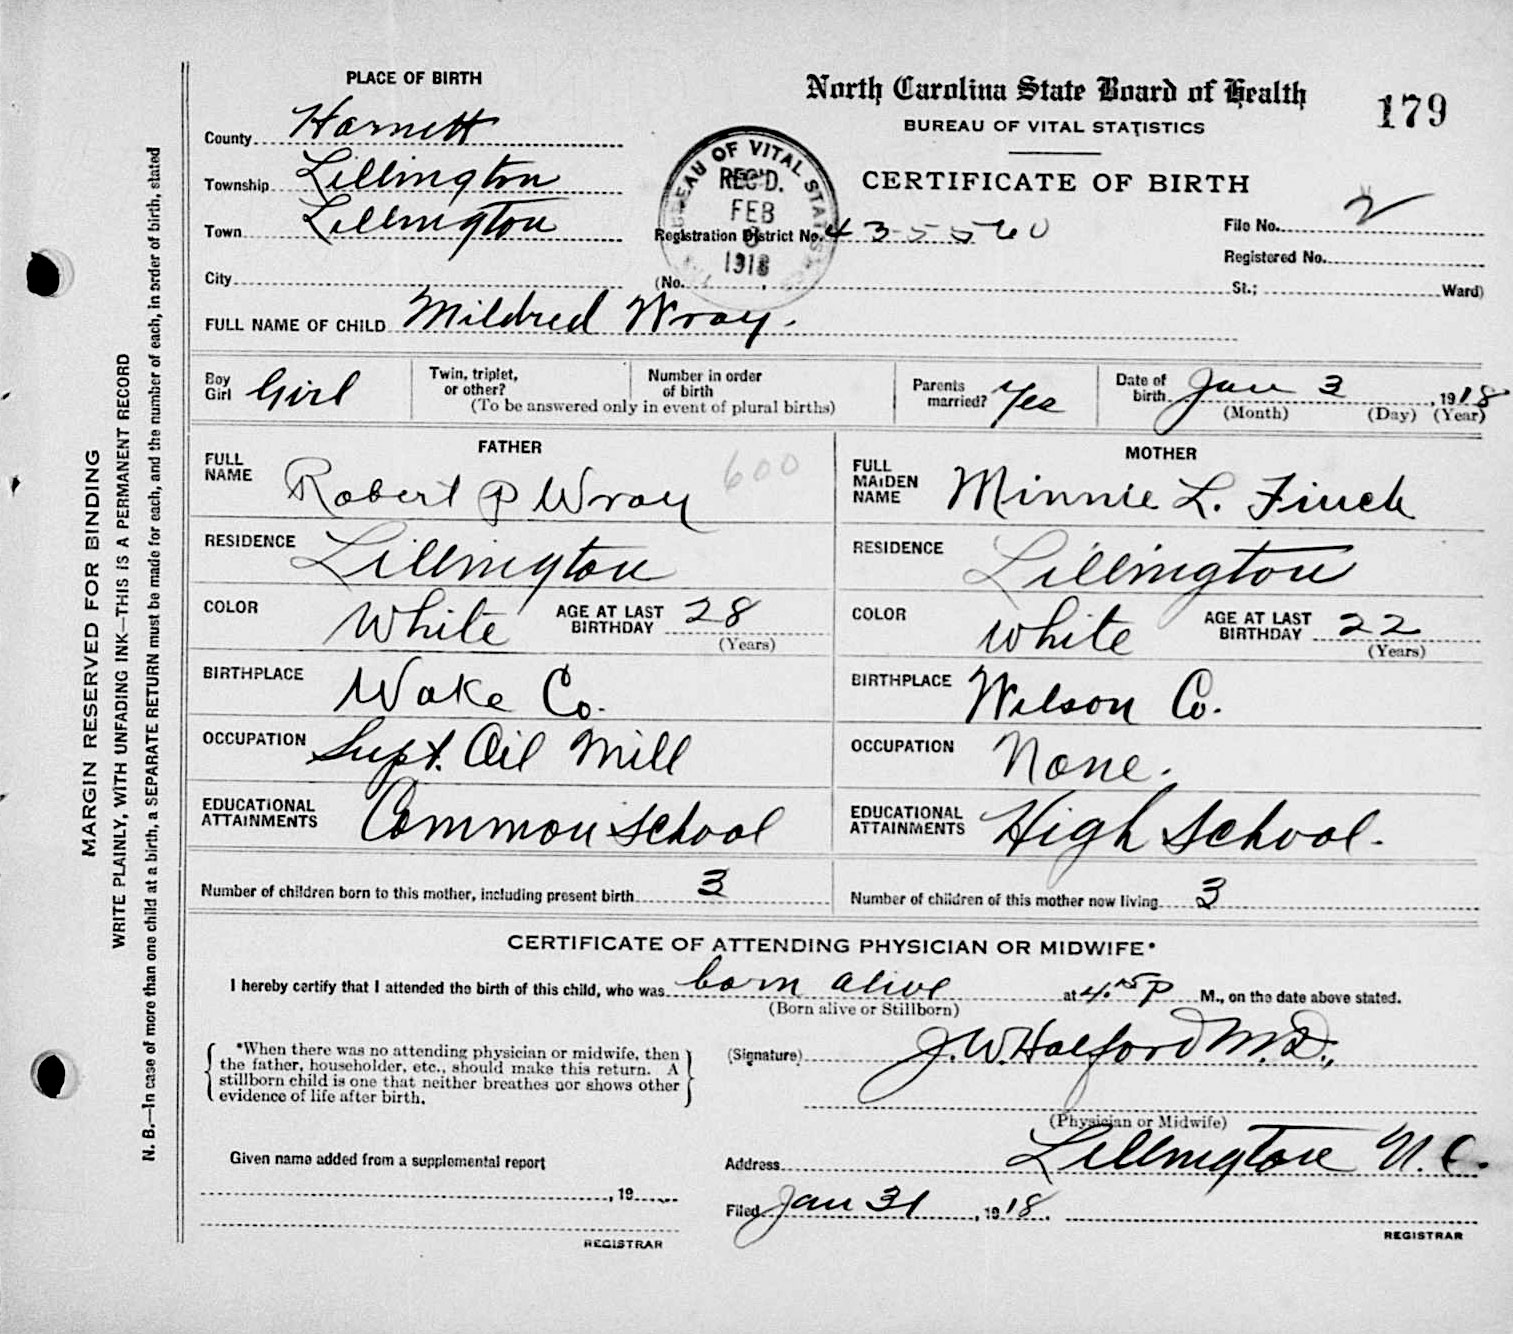 PLACE OF BIRTH
County Harnett
Township Lillington
Town Lillington
City
North Carolina State Board of Health
179
BUREAU OF VITAL STATISTICS
CERTIFICATE OF BIRTH
BUREAU OF VITAL STATISTICS
REC'D.
FEB
8
1918
Registration District No. 43-5560
File No. 2
Registered No.
(No. St.; Ward)
FULL NAME OF CHILD Mildred Wray.
Boy
Girl Girl
Twin, triplet,
or other?
Number in order
of birth
(To be answered only in event of plural births)
Parents
married? Yes
Date of
birth Jan 3, 1918
(Month) (Day) (Year)
FATHER
FULL
NAME Robert P Wray
600
RESIDENCE Lillington
COLOR White
AGE AT LAST
BIRTHDAY 28
(Years)
BIRTHPLACE Wake Co.
OCCUPATION Supt. Oil Mill
EDUCATIONAL
ATTAINMENTS Common School
MOTHER
FULL
MAIDEN
NAME Minnie L. Finch
RESIDENCE Lillington
COLOR White
AGE AT LAST
BIRTHDAY 22
(Years)
BIRTHPLACE Wilson Co.
OCCUPATION None.
EDUCATIONAL
ATTAINMENTS High School.
Number of children born to this mother, including present birth 3
Number of children of this mother now living 3
CERTIFICATE OF ATTENDING PHYSICIAN OR MIDWIFE*
I hereby certify that I attended the birth of this child, who was born alive at 4:15 P M., on the date above stated.
(Born alive or Stillborn)
*When there was no attending physician or midwife, then
the father, householder, etc., should make this return. A
stillborn child is one that neither breathes nor shows other
evidence of life after birth.
(Signature) J. W. Halford M.D.,
(Physician or Midwife)
Given name added from a supplemental report
, 19
REGISTRAR
Address Lillington N.C.
Filed Jan 31, 1918.
REGISTRAR
MARGIN RESERVED FOR BINDING
WRITE PLAINLY, WITH UNFADING INK—THIS IS A PERMANENT RECORD
N. B.—In case of more than one child at a birth, a SEPARATE RETURN must be made for each, and the number of each, in order of birth, stated